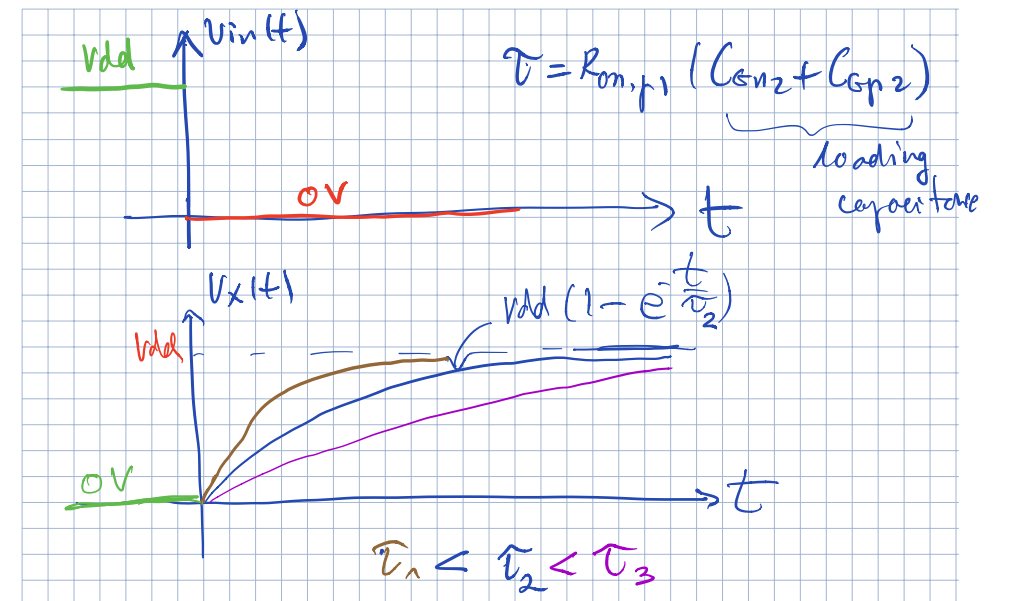 Vin(t)
Vdd
τ = Ron,p1 (CGn2 + CGp2)
loading
capacitance
0V
t
Vx(t)
Vdd (1 - e^-t/τ2)
Vdd
0V
t
τ1 < τ2 < τ3